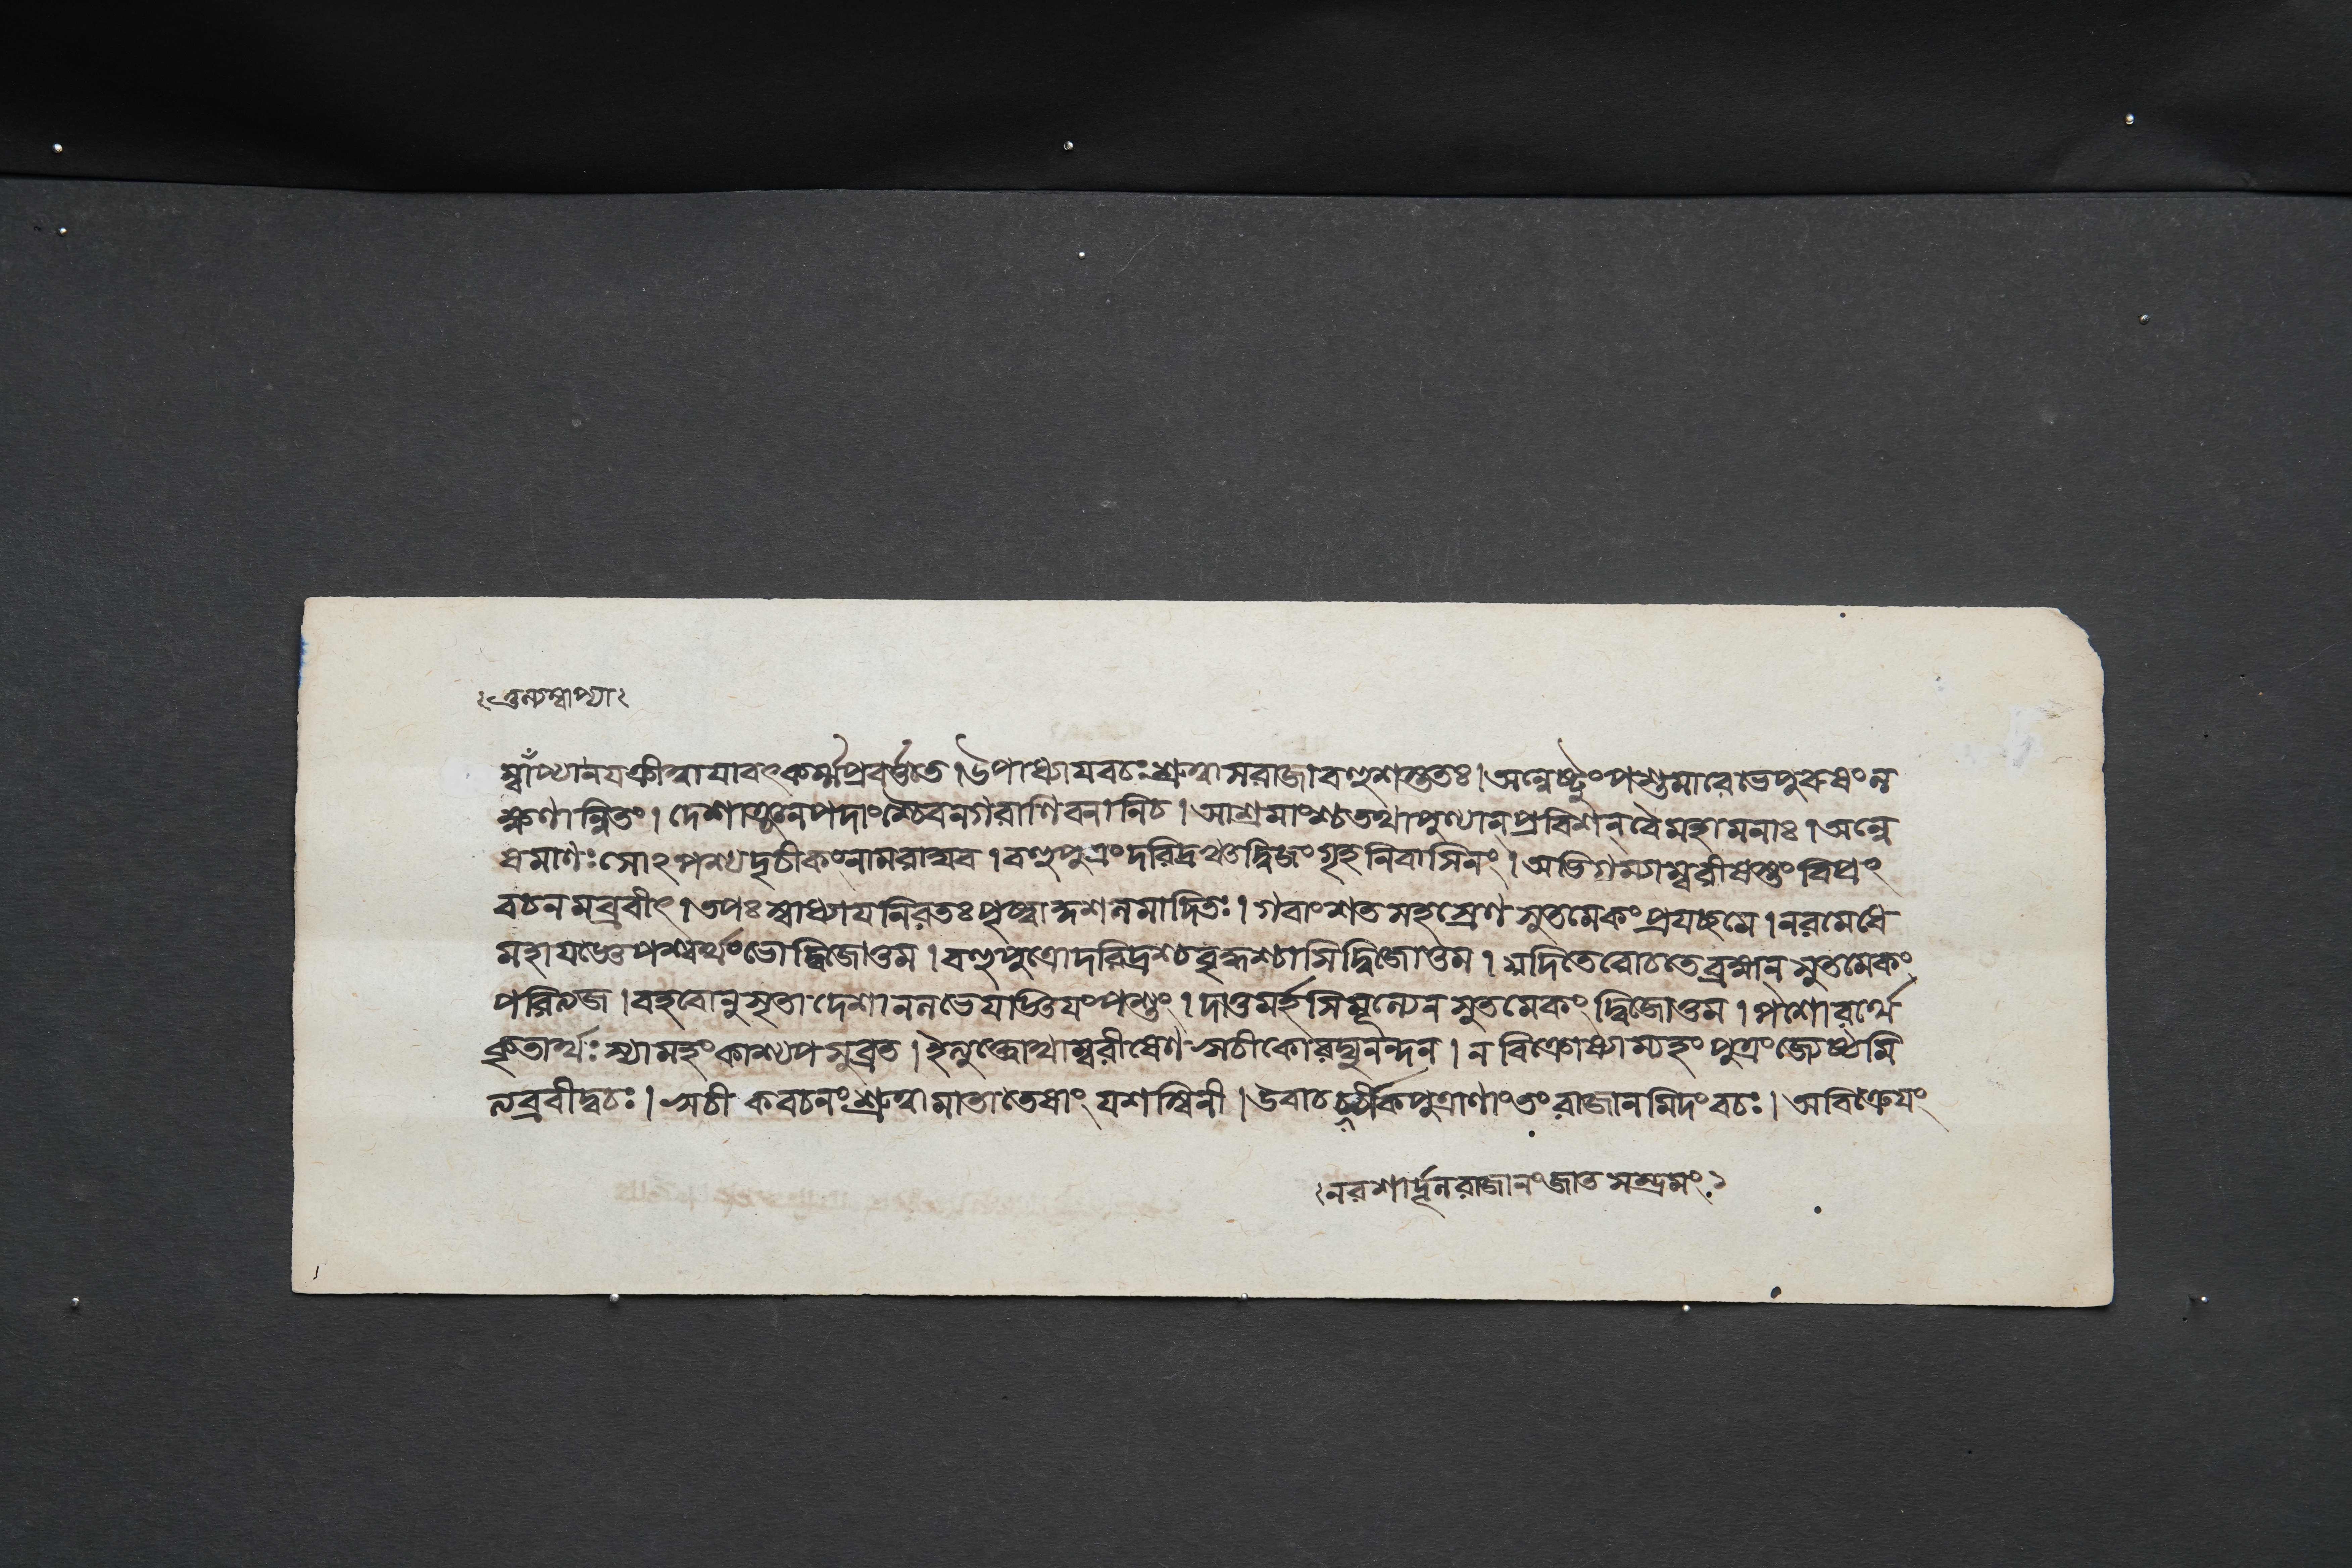 তুল্যম্বাপ্যা
ম্বাঁপ্যানযক্রীত্বাযাবৎকর্ম্মপ্রবর্ত্ততে। উপাধ্যাযবচঃশ্রুত্বাসরাজাবহুশস্ততঃ। অন্বেষ্টুংপশুমারেভেপুরুষংল
ক্ষণান্বিতং। দেশাঞ্জনপদাংশ্চৈবনগরাণিবনানিচ। আশ্রমাংশ্চতথাপুণ্যান্প্রবিশন্বৈমহামনাঃ। অন্বে
ষমাণঃসোঽপশ্যদৃচীকংনামরাঘব। বহুপুত্রংদরিদ্রঞ্চদ্বিজংগৃহনিবাসিনং। অভিগম্যাম্বরীষস্তংবিপ্রং
বচনমব্রবীৎ। তপঃস্বাধ্যাযনিরতঃপৃষ্ট্বাকুশলমাদিতঃ। গবাংশতসহস্রেণসুতমেকংপ্রযচ্ছমে। নরমেধে
মহাযজ্ঞেপশ্বর্থংভোদ্বিজোত্তম। বহুপুত্রোদরিদ্রশ্চবৃদ্ধশ্চাসিদ্বিজোত্তম। যদিতেরোচতেব্রহ্মন্সুতমেকং
পরিত্যজ। বহবোনুসৃতাদেশাননলভেযাজ্ঞিযংপশুং। দাতুমর্হসিমূল্যেনসুতমেকংদ্বিজোত্তম। পশোরর্থে
কৃতার্থঃস্যামহংকাশ্যপসুব্রত। ইত্যুক্তোথাম্বরীষেণঋচীকোরঘুনন্দন। নবিক্রেষ্যাম্যহংপুত্রংজ্যেষ্ঠমি
ত্যব্রবীদ্বচঃ। ঋচীকবচনংশ্রুত্বামাতাতেষাংযশস্বিনী। উবাচর্চীকপুত্রাণাংতংরাজানমিদংবচঃ। অবিক্রেযং
নরশার্দূলরাজানংজাতসম্ভ্রমং